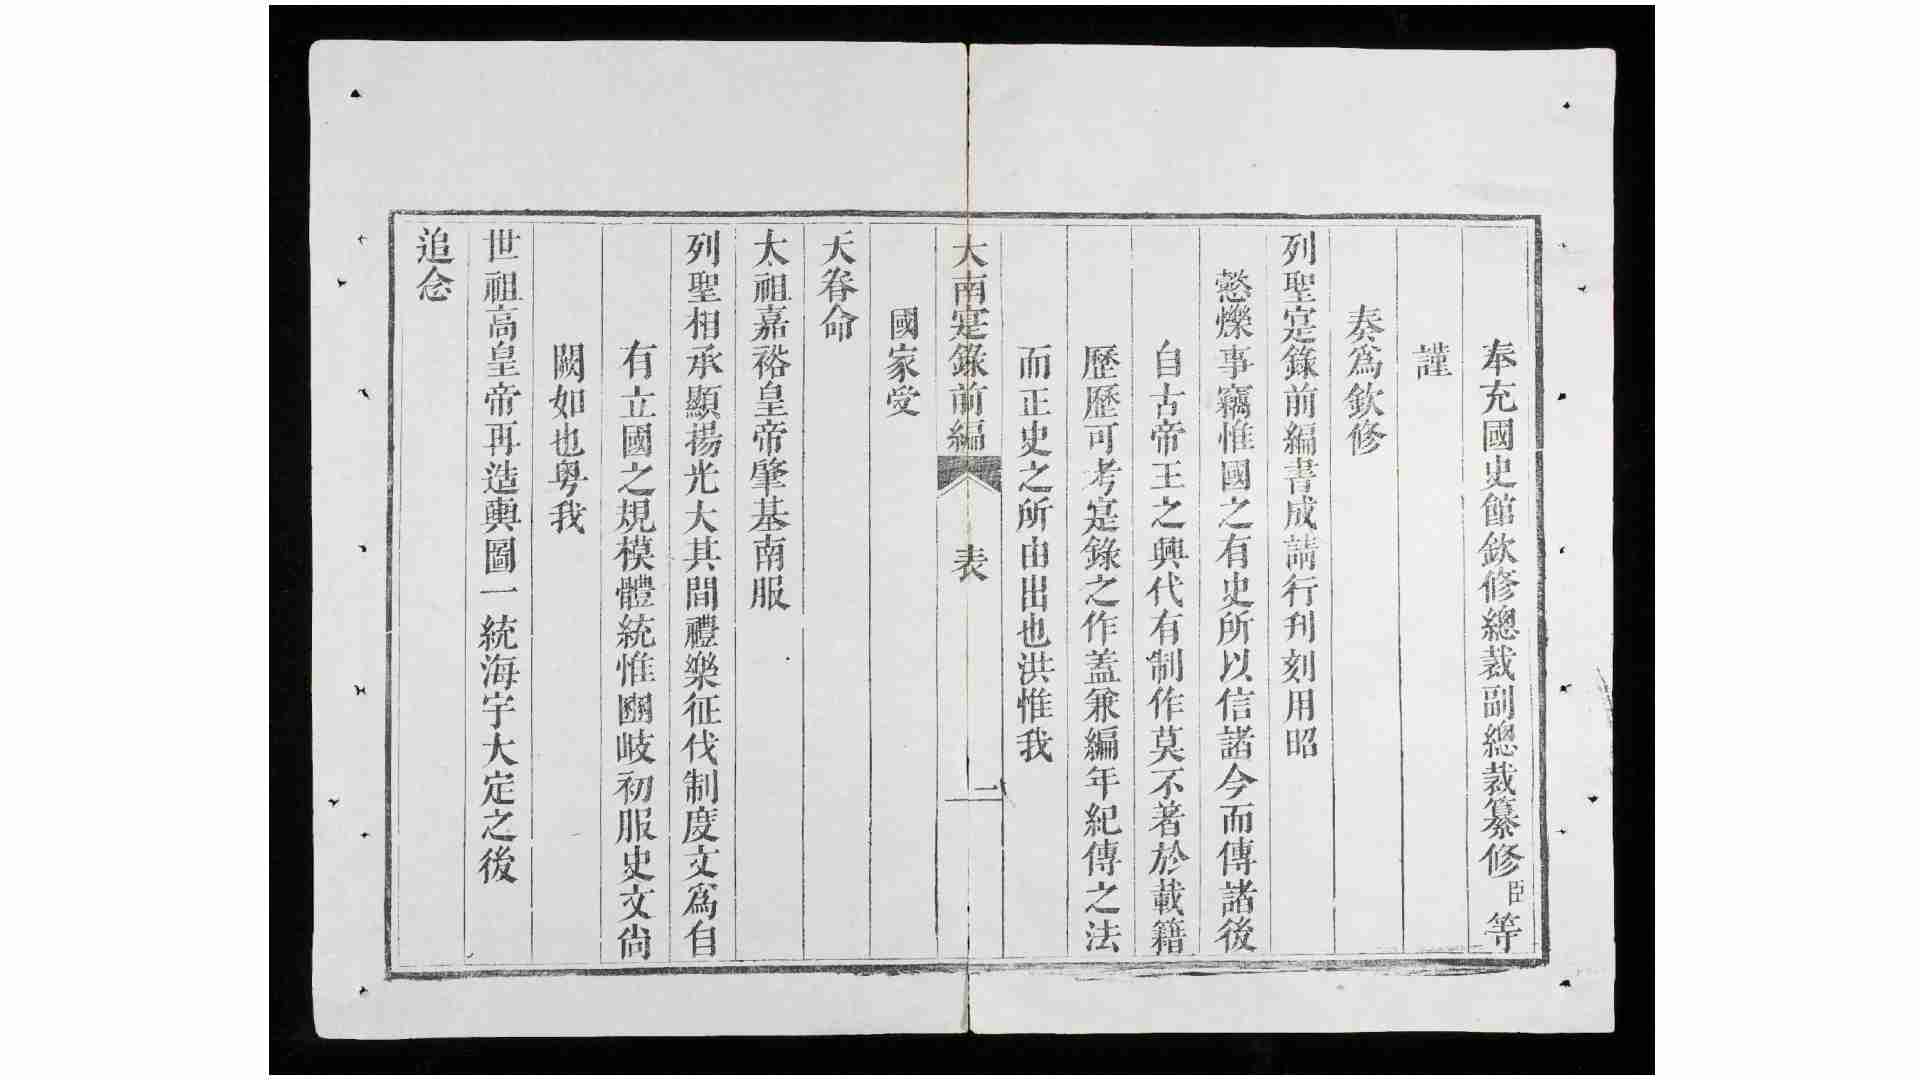 奉充國史館欽修總裁副總裁纂修臣等
謹
奏爲欽修
列聖寔錄前編書成請行刋刻用昭
懿爍事竊惟國之有史所以信諸今而傳諸後
自古帝王之興代有制作莫不著於載籍
歷歷可考寔錄之作蓋兼編年紀傳之法
而正史之所由出也洪惟我
大南寔錄前編 表 一
國家受
天眷命
太祖嘉裕皇帝肇基南服
列聖相承顯揚光大其間禮樂征伐制度文爲自
有立國之規模體統惟豳岐初服史文尙
闕如也粤我
世祖高皇帝再造輿圖一統海宇大定之後
追念